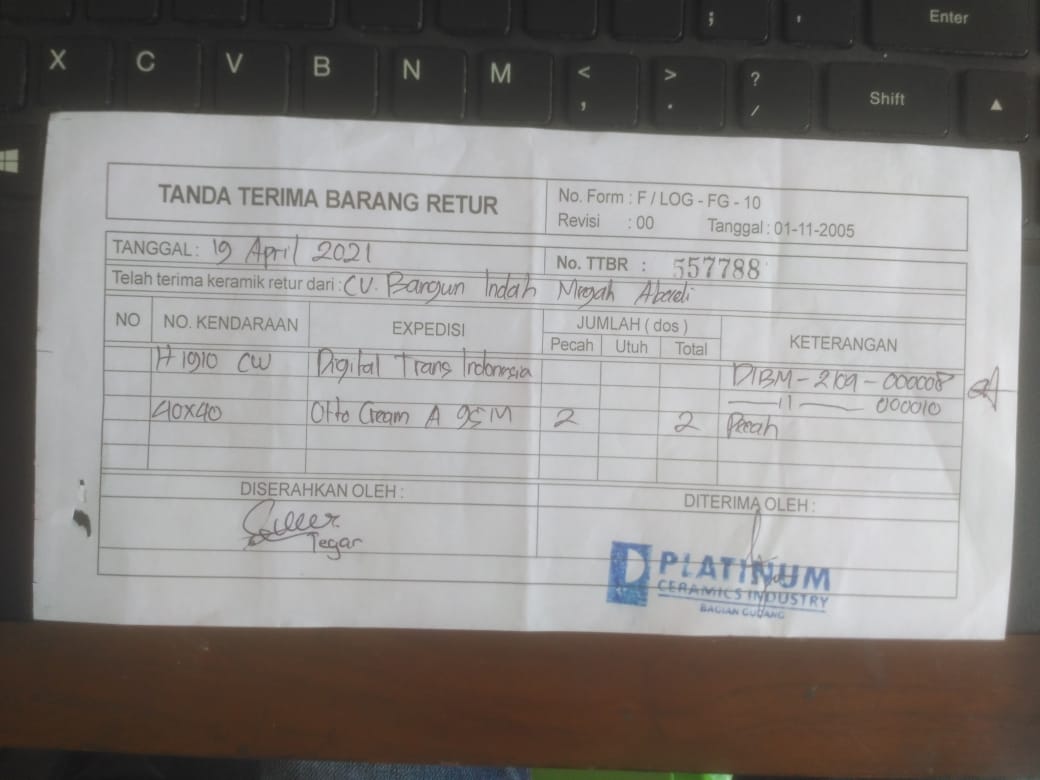 ; '
Enter
X C V B N M < , > . ? / Shift ▲
TANDA TERIMA BARANG RETUR
No. Form : F / LOG - FG - 10
Revisi : 00 Tanggal : 01-11-2005
TANGGAL : 19 April 2021
No. TTBR : 557788
Telah terima keramik retur dari : CV. Bangun Indah Megah Abadi
NO NO. KENDARAAN EXPEDISI JUMLAH ( dos ) KETERANGAN
Pecah Utuh Total
H 1910 CW Digital Trans Indonesia DIBM - 2109 - 000008
—— 11 —— 000010
40x40 Otto Cream A 95M 2 2 Pecah
DISERAHKAN OLEH :
DITERIMA OLEH :
Tegar
PLATINUM
CERAMICS INDUSTRY
BAGIAN GUDANG